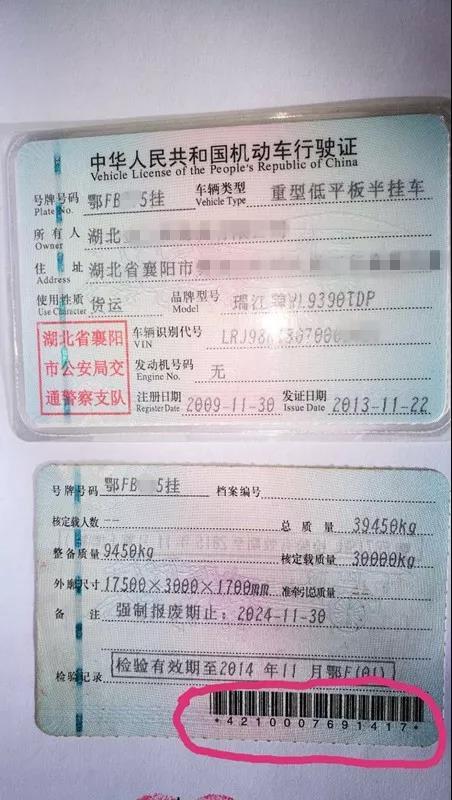 中华人民共和国机动车行驶证
Vehicle License of the People's Republic of China
号牌号码 鄂FB 5挂 车辆类型 重型低平板半挂车
Plate No. Vehicle Type
所有人 湖北
Owner
住址 湖北省襄阳市
Address
使用性质 货运 品牌型号 瑞江牌 WL9390TDP
Use Character Model
湖北省襄阳
市公安局交
通警察支队
车辆识别代号
VIN
发动机号码 无
Engine No.
注册日期 2009-11-30 发证日期 2013-11-22
Register Date Issue Date
号牌号码 鄂FB 5挂 档案编号
核定载人数 -- 总质量 39450kg
整备质量 9450kg 核定载质量 30000kg
外廓尺寸 17500×3000×1700mm 准牵引总质量 --
备注 强制报废期止：2024-11-30
检验记录 检验有效期至2014 年11 月鄂F(01)
*4210007691417*